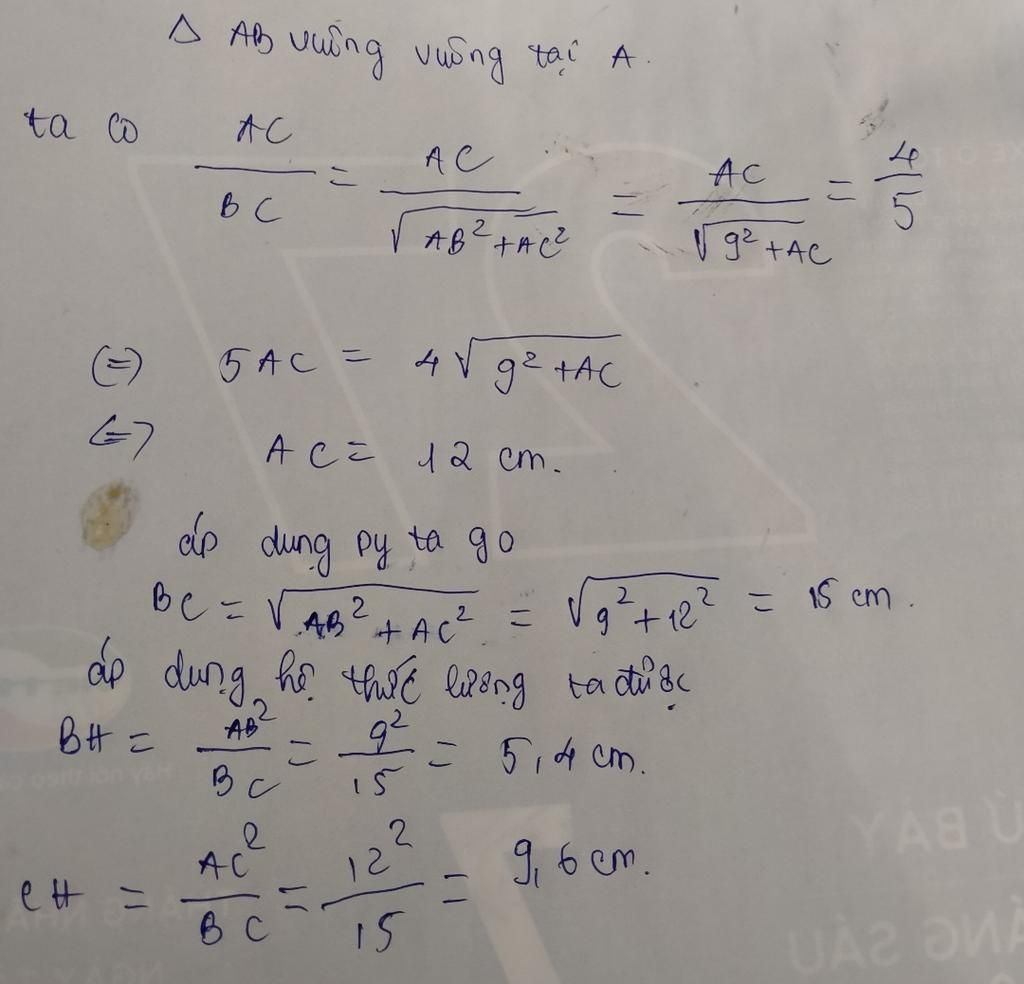 Δ AB vuông vuông tại A.
ta có AC/BC = AC/√(AB² + AC²) = AC/√(9² + AC) = 4/5
(=) 5AC = 4√(9² + AC)
<=> AC = 12 cm.
áp dụng py ta go
BC = √(AB² + AC²) = √(9² + 12²) = 15 cm.
áp dụng hệ thức lượng ta được
BH = AB²/BC = 9²/15 = 5,4 cm.
CH = AC²/BC = 12²/15 = 9,6 cm.